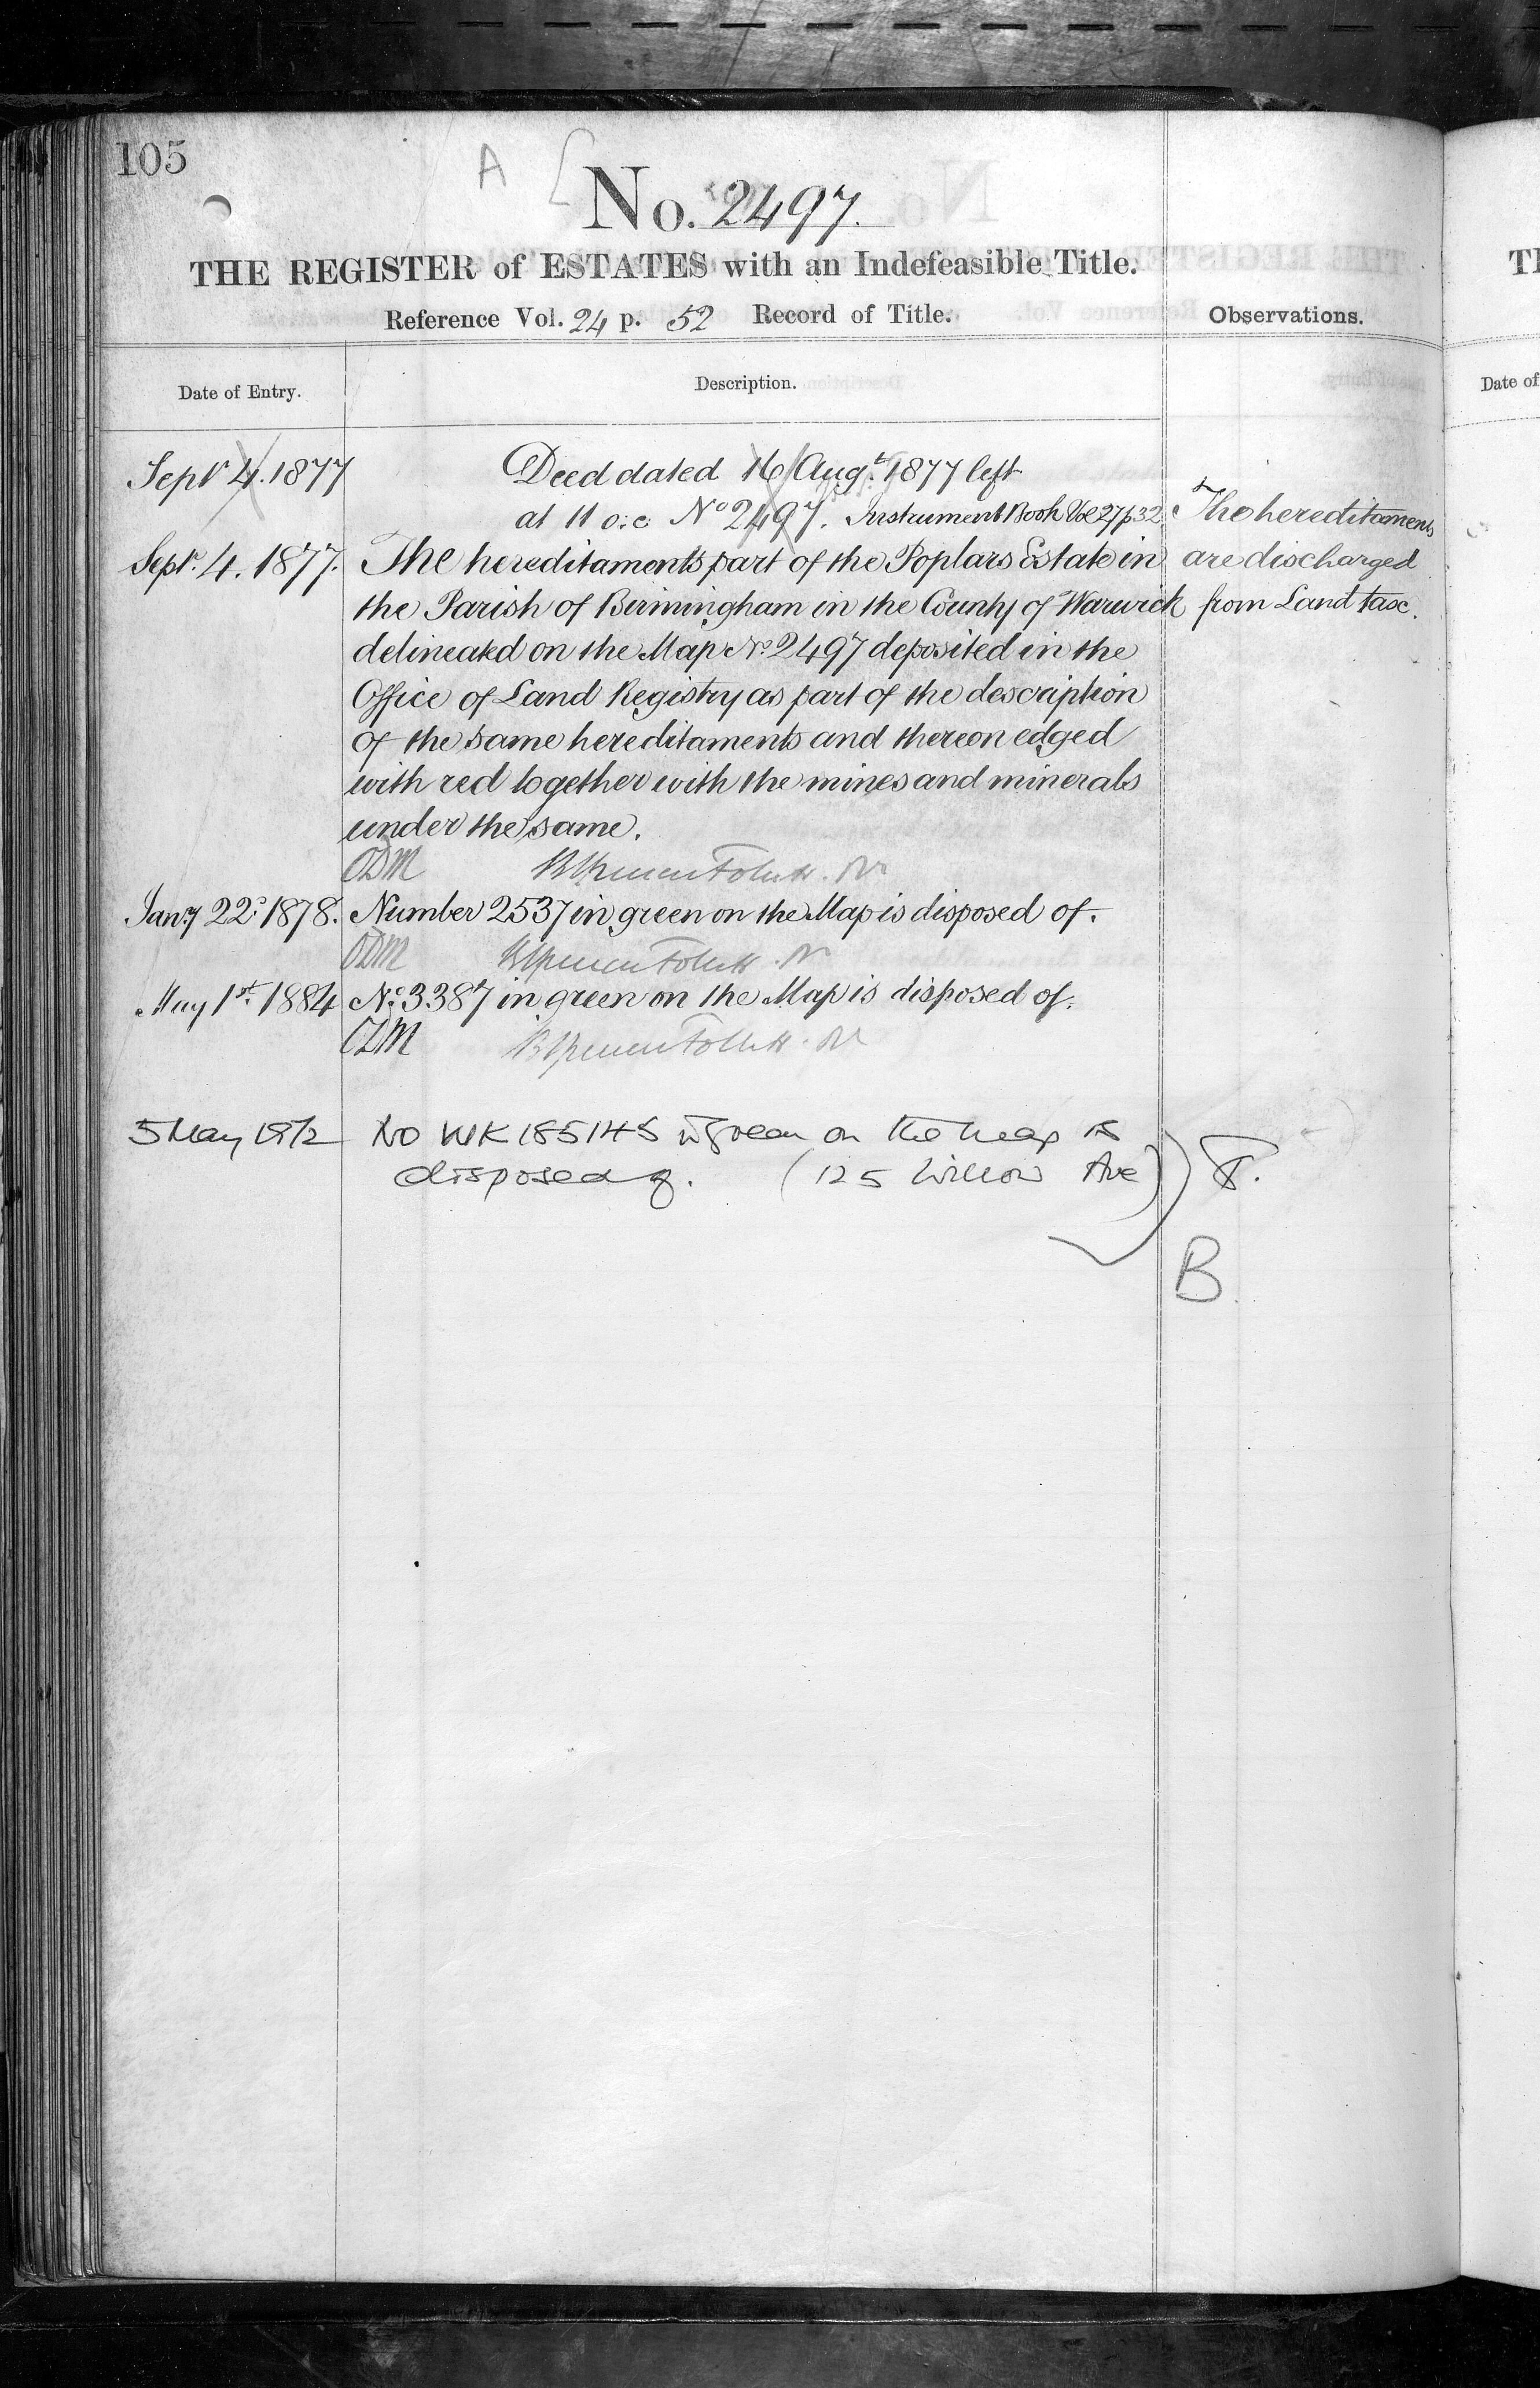 105
A
No. 2497.
THE REGISTER of ESTATES with an Indefeasible Title.
Reference Vol. 24 p. 52 Record of Title.
Observations.
Date of Entry.
Description.
Sept.r 4. 1877
Deed dated 16 Aug.t 1877 left
at 11 o:c No 2497. Instrument Book Vol 27 p 32
Sept.r 4. 1877. The hereditaments part of the Poplars Estate in
the Parish of Birmingham in the County of Warwick
delineated on the Map No. 2497 deposited in the
Office of Land Registry as part of the description
of the same hereditaments and thereon edged
with red together with the mines and minerals
under the same.
The hereditaments
are discharged
from Land tax.
Jan.y 22.d 1878. Number 2537 in green on the Map is disposed of.
May 1st. 1884 No. 3387 in green on the Map is disposed of.
5 May 1972 No WK 185145 in green on the map is
disposed of. (125 Willow Ave)
B.
Date of